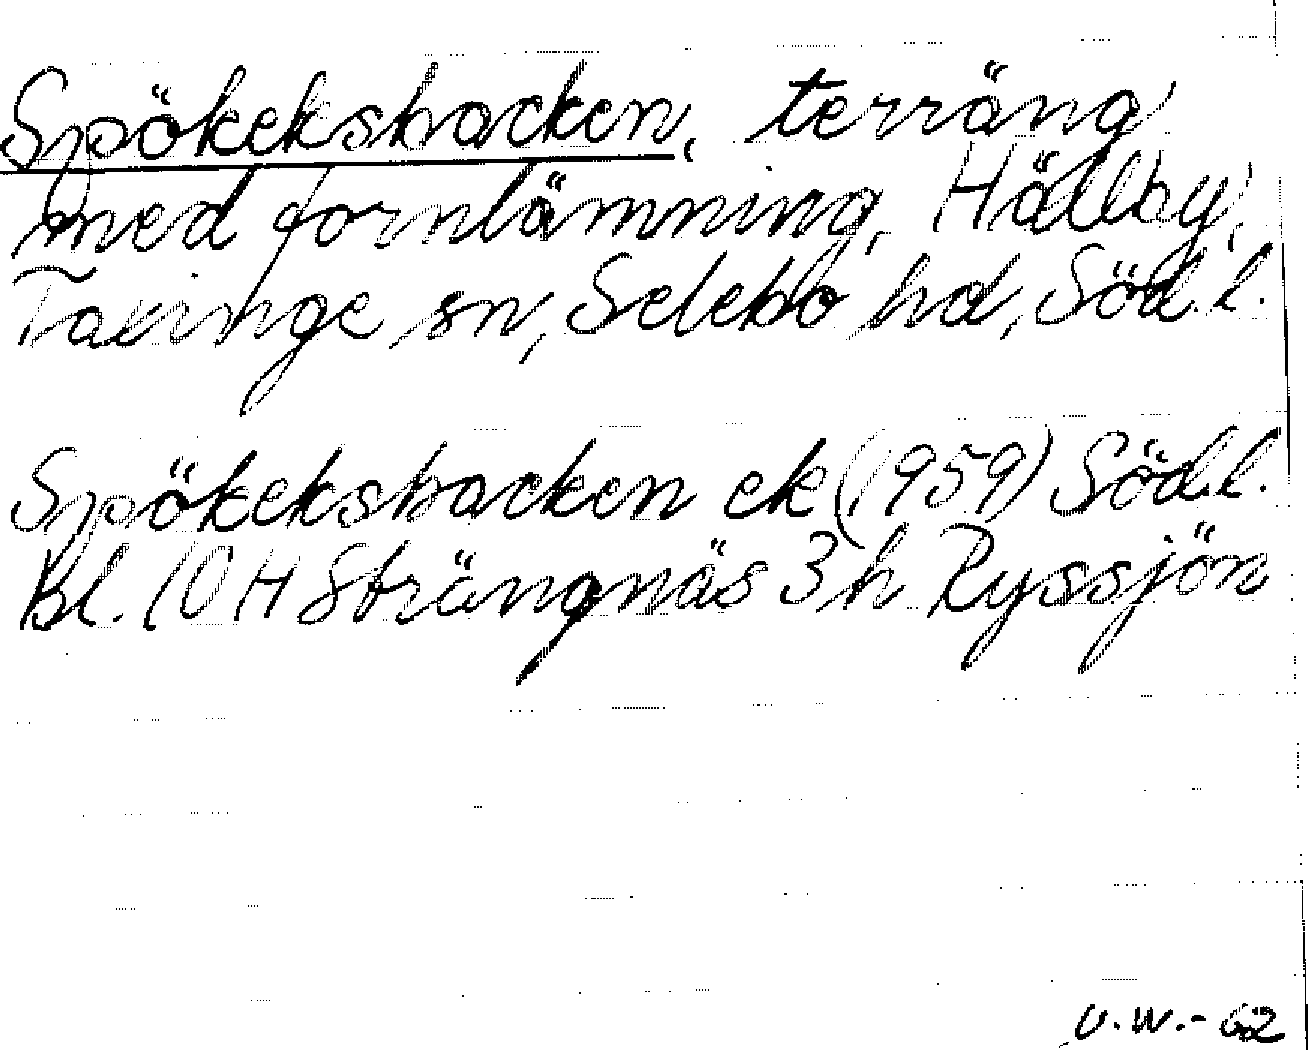 Spökeksbacken, terräng
med fornlämning, Hällby,
Taxinge sn, Selebo hd, Södl.
Spökeksbacken ek (1959) Södl.
Bl. 10 H Strängnäs 3 h Ryssjön
U.W.-62